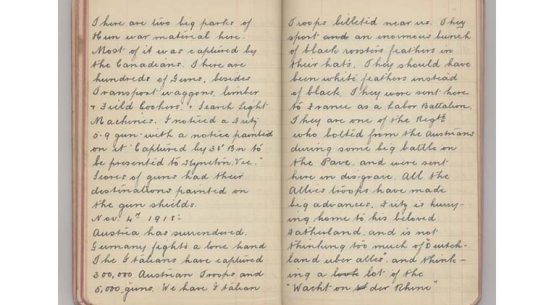 There are two big parks of
Hun war material here.
Most of it was captured by
the Canadians. There are
hundreds of Guns, besides
Transport waggons, limber
& Field Cookers, & Search Light
Machines. I noticed a Fritz
5.9 gun with a notice painted
on it "Captured by 31st Bn to
be presented to Vic."
Scores of guns had their
destinations painted on
the gun shields.
Nov 4th 1918:
Austria has surrendered.
Germany fights a lone hand
The Italians have captured
300,000 Austrian Troops and
5,000 guns. We have Italian
Troops billeted near us. They
sport an enormous bunch
of black roosters feathers in
their hats. They should have
been white feathers instead
of black. They were sent here
to France as a Labor Battalion.
They are one of the Regts
who bolted from the Austrians
during some big battle on
the Pave, and were sent
here in disgrace. All the
Allies troops have made
big advances. Fritz is hurry-
ing home to his beloved
Fatherland, and is not
thinking too much of "Deutch-
land uber alles" and think-
ing a lot of the
"Wacht on der Rhine"